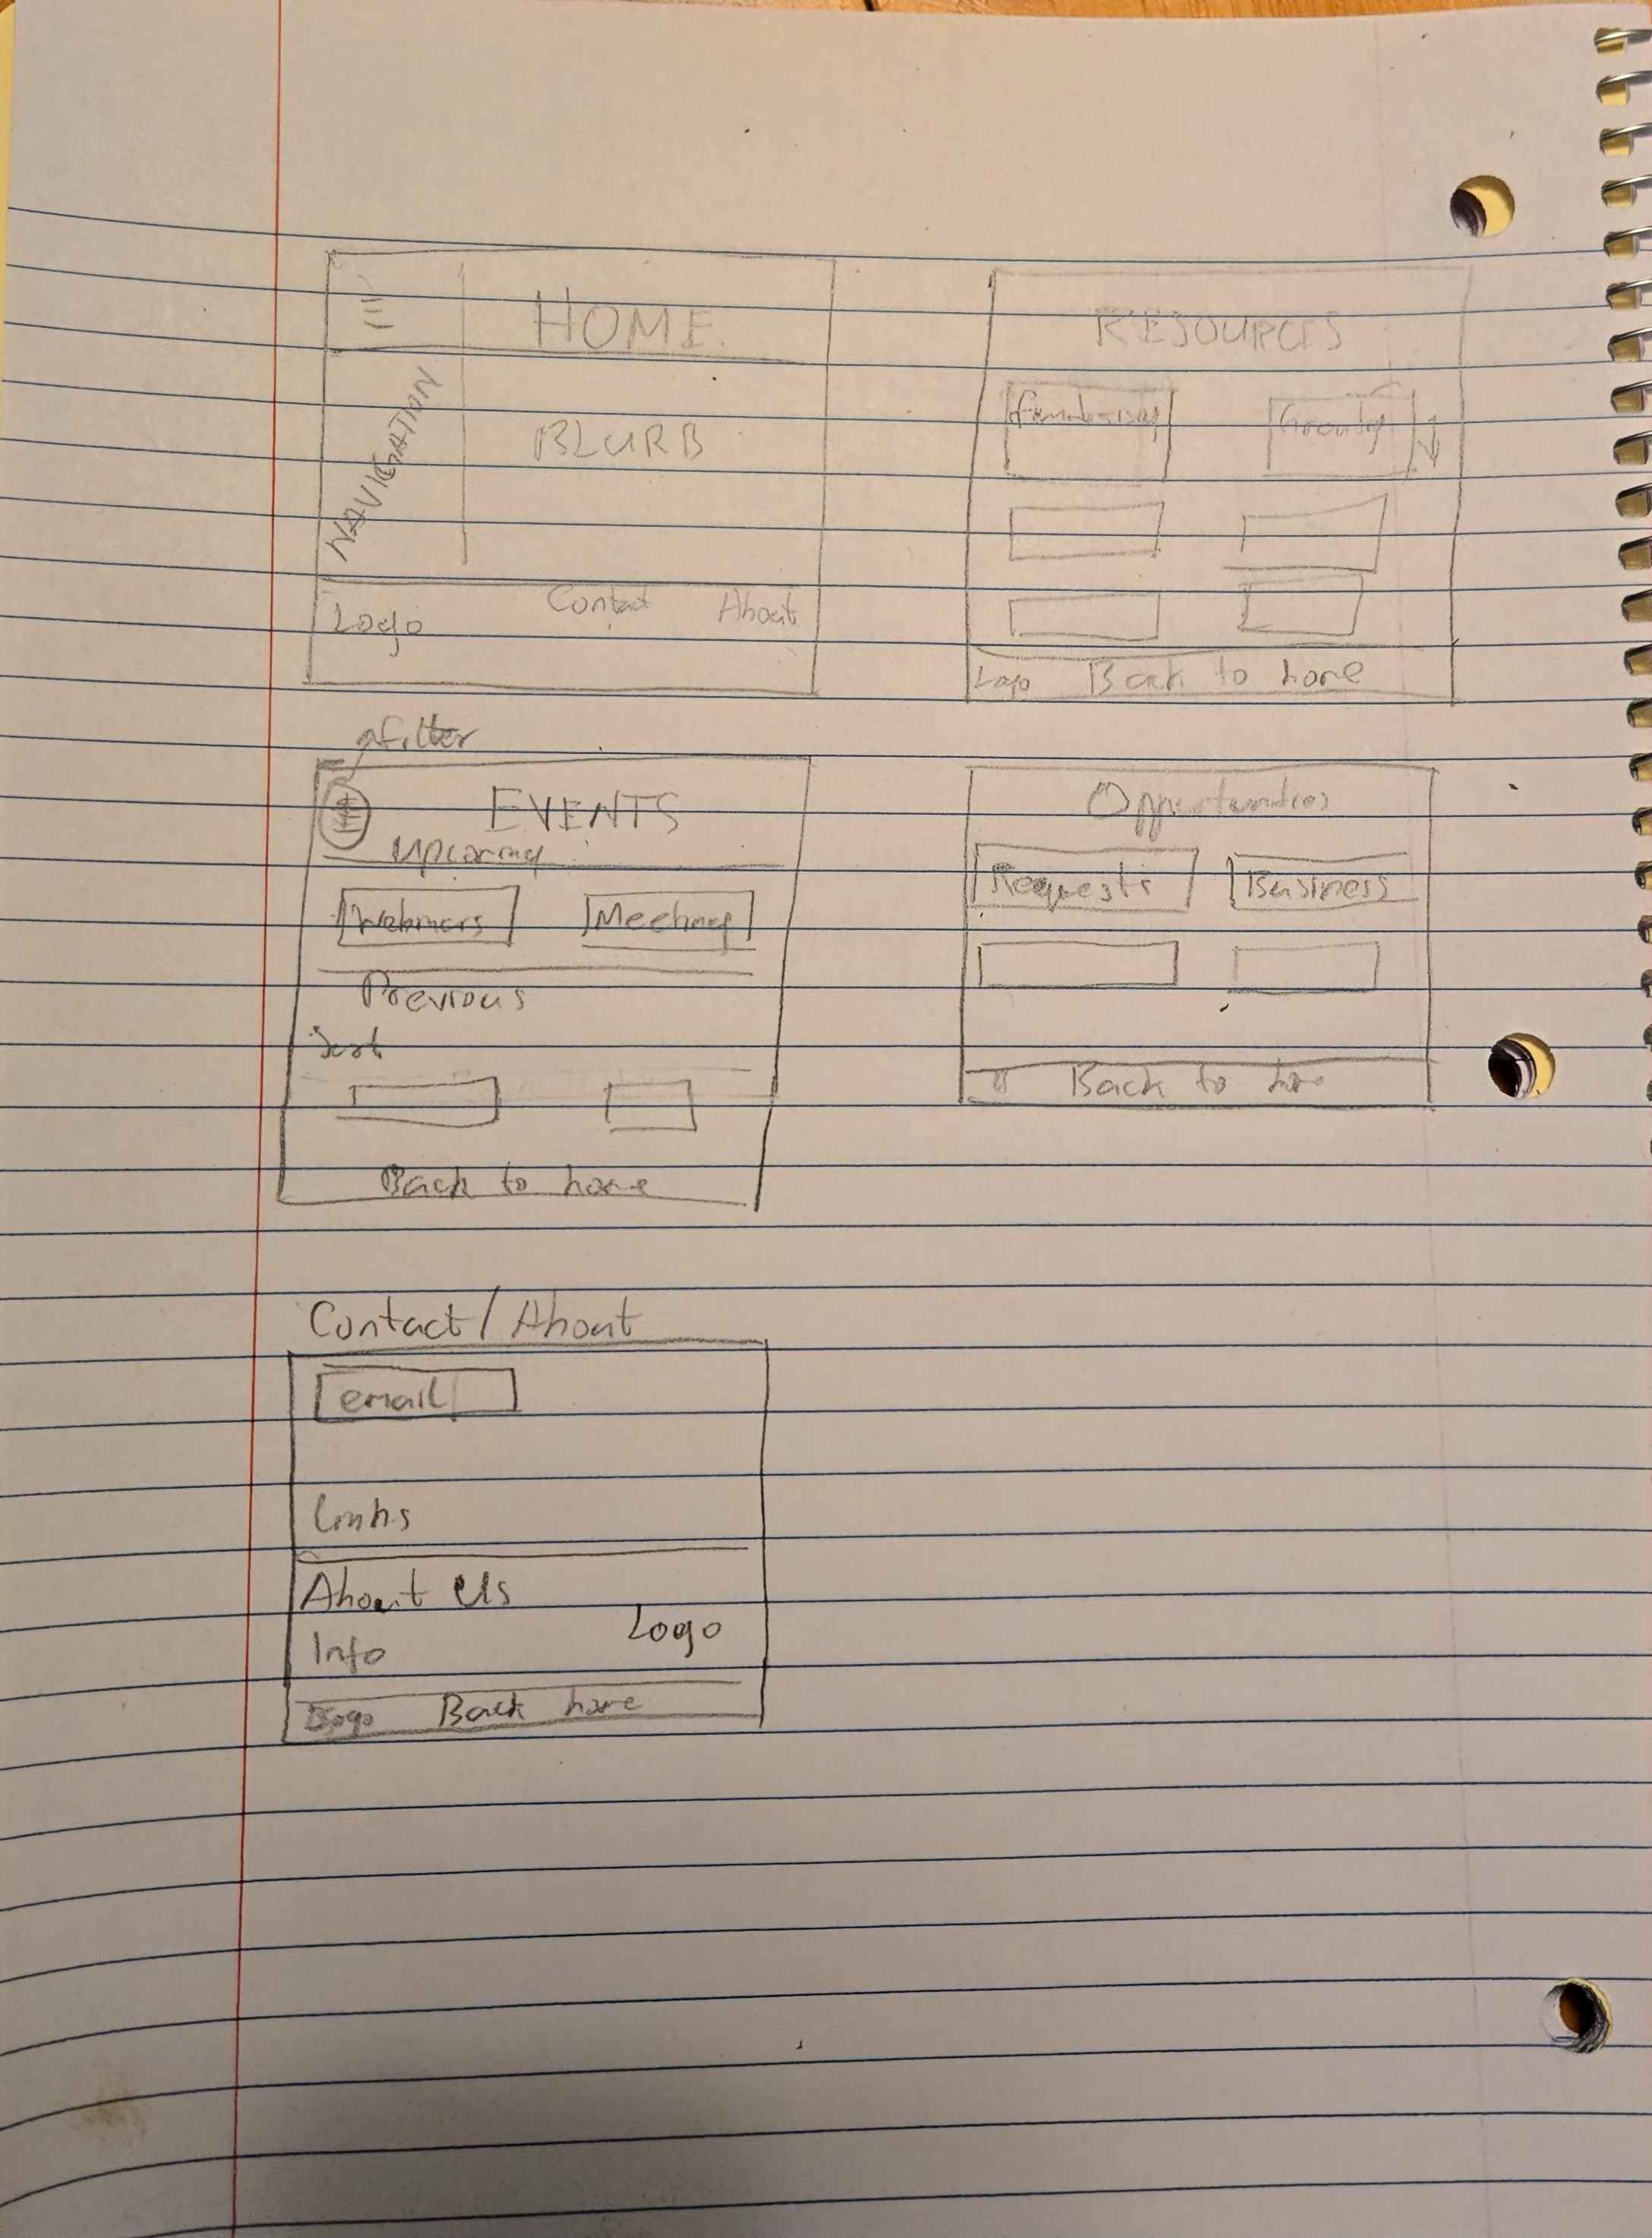 HOME
NAVIGATION
BLURB
Logo Contact About
RESOURCES
Logo Back to home
filter
EVENTS
Upcoming
Webinars Meeting
Previous
Sort
Back to home
Opportunities
Requests Business
Back to
Contact / About
email
links
About Us
Info
Logo
Logo Back home